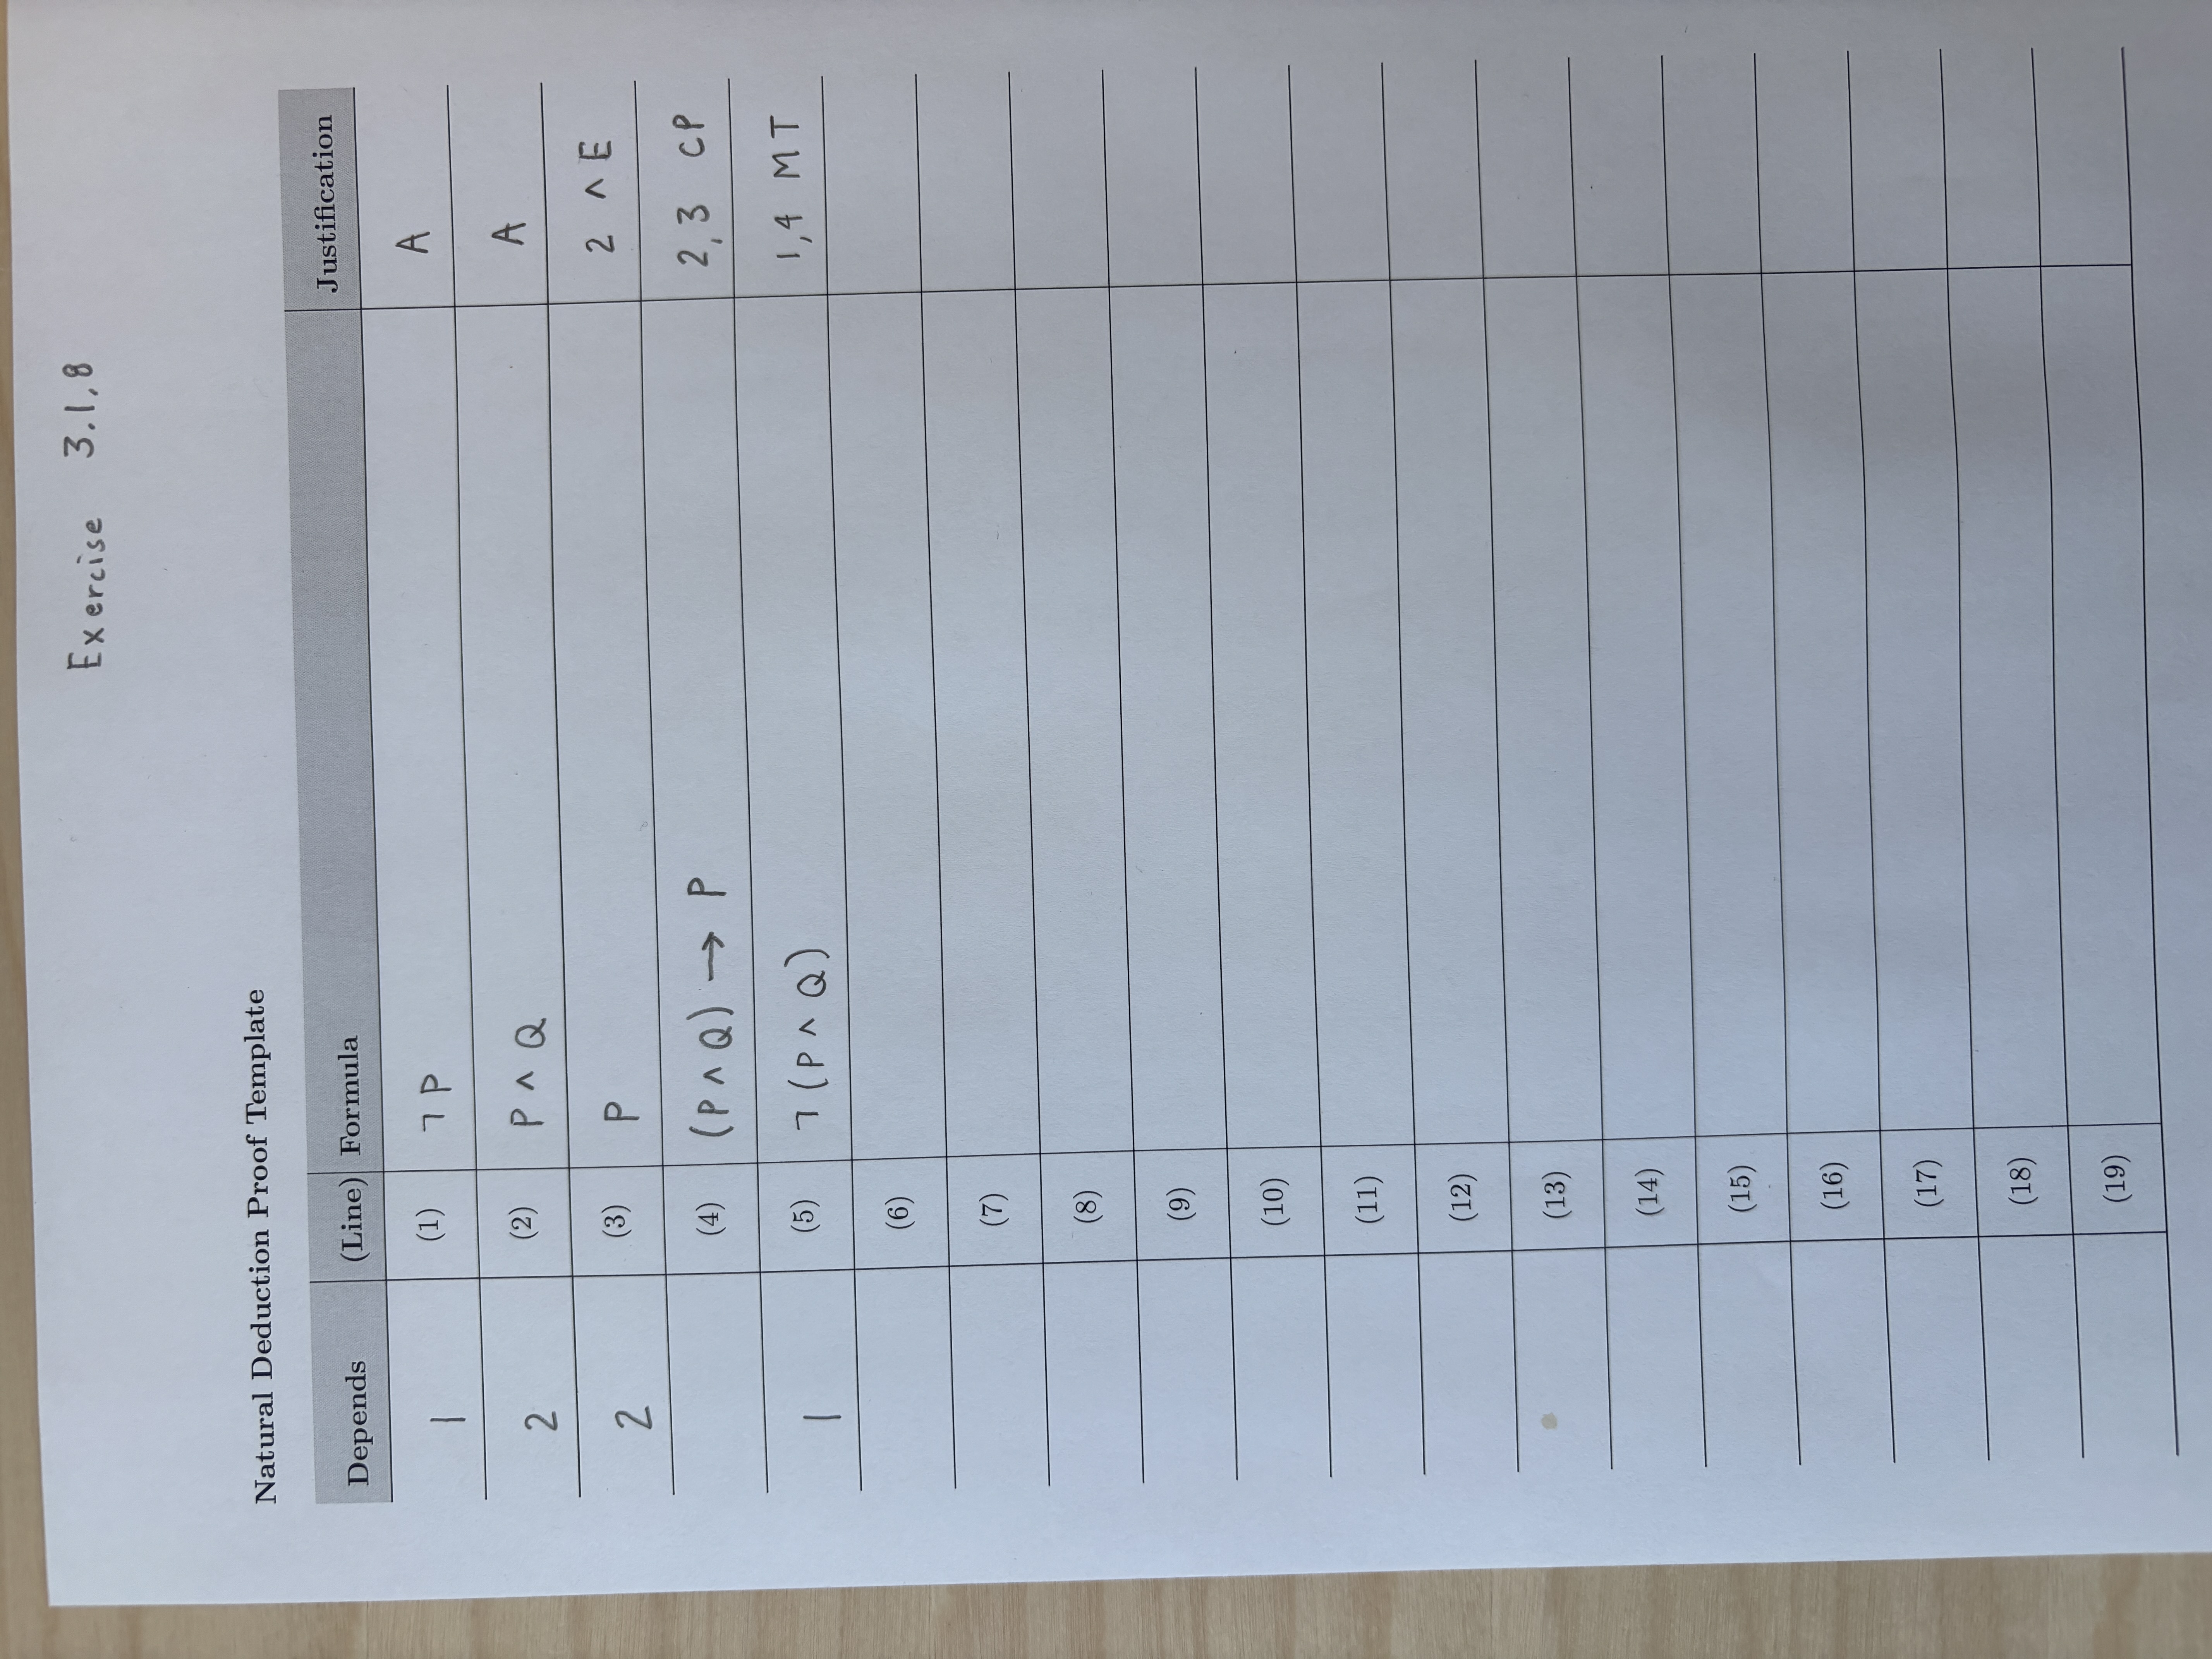 Exercise 3.1.8
Natural Deduction Proof Template
Depends (Line) Formula Justification
1 (1) ¬P A
2 (2) P ∧ Q A
2 (3) P 2 ∧E
(4) (P ∧ Q) → P 2,3 CP
1 (5) ¬(P ∧ Q) 1,4 MT
(6)
(7)
(8)
(9)
(10)
(11)
(12)
(13)
(14)
(15)
(16)
(17)
(18)
(19)